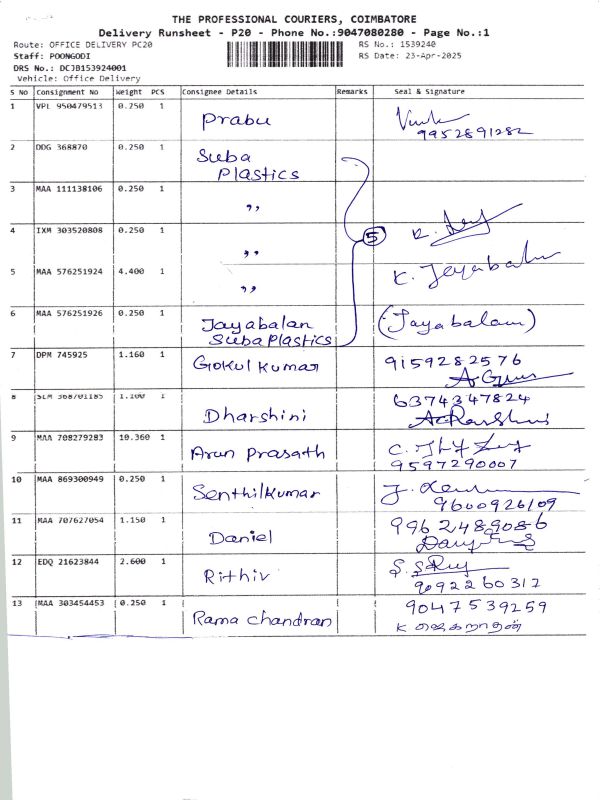 THE PROFESSIONAL COURIERS, COIMBATORE
Delivery Runsheet - P20 - Phone No.:9047080280 - Page No.:1
Route: OFFICE DELIVERY PC20
RS No.: 1539240
Staff: POONGODI
RS Date: 23-Apr-2025
DRS No.: DCJB153924001
Vehicle: Office Delivery
S No Consignment No Weight PCS Consignee Details Remarks Seal & Signature
1 VPL 950479513 0.250 1 Prabu
9952891282
2 DDG 368870 0.250 1 Suba Plastics
3 MAA 111138106 0.250 1 ,,
4 IXM 303520808 0.250 1 ,, 5
5 MAA 576251924 4.400 1 ,, K. Jeyabalan
6 MAA 576251926 0.250 1 Jayabalan Suba Plastics (Jayabalan)
7 DPM 745925 1.160 1 Gokul Kumar 9159282576
8 SLM 368701185 1.100 1 Dharshini 6374347824
9 MAA 708279283 10.360 1 Arun Prasath
9597290007
10 MAA 869300949 0.250 1 Senthilkumar
9600926109
11 MAA 707627054 1.150 1 Daniel 9962489086
12 EDQ 21623844 2.600 1 Rithiv
9692260312
13 MAA 303454453 0.250 1 Rama chandran 9047539259